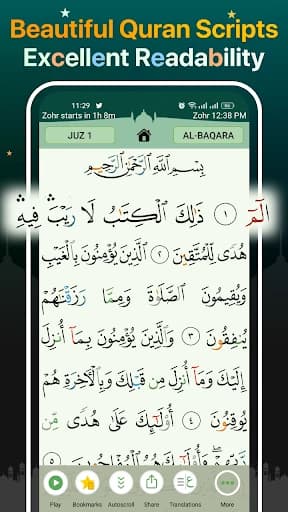 Beautiful Quran Scripts
Excellent Readability
11:29
Zohr starts in 1h 8m
Zohr 12:38 PM
JUZ 1
AL-BAQARA
بِسْمِ اللَّهِ الرَّحْمَٰنِ الرَّحِيمِ
الٓمٓ ١ ذَٰلِكَ الْكِتَٰبُ لَا رَيْبَ ۛ فِيهِ ۛ
هُدًى لِّلْمُتَّقِينَ ٢ الَّذِينَ يُؤْمِنُونَ بِالْغَيْبِ
وَيُقِيمُونَ الصَّلَٰوةَ وَمِمَّا رَزَقْنَٰهُمْ
يُنفِقُونَ ٣ وَالَّذِينَ يُؤْمِنُونَ بِمَآ أُنزِلَ
إِلَيْكَ وَمَآ أُنزِلَ مِن قَبْلِكَ وَبِالْءَاخِرَةِ هُمْ
يُوقِنُونَ ٤ أُو۟لَٰٓئِكَ عَلَىٰ هُدًى مِّن
رَّبِّهِمْ ۖ وَأُو۟لَٰٓئِكَ هُمُ الْمُفْلِحُونَ ٥
Play
Bookmarks
Autoscroll
Share
Translations
More